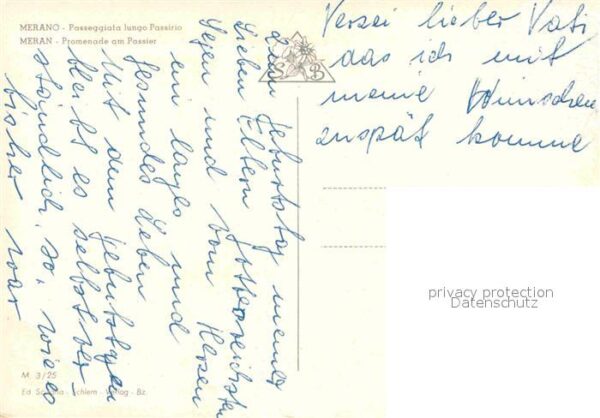 MERANO - Passeggiata lungo Passirio
MERAN - Promenade am Passier
Verzei lieber Vati
das ich mit
meine Wünschen
zuspät komme
Zum Geburtstag meiner
lieben Eltern Gottesreichsten
Segen und vom Herzen
ein langes und
gesundes Leben
Mit dem Geburtstagen
bleibt es selbstver-
ständlich, so, wie es
bisher war
S B
M 3/25
privacy protection
Datenschutz